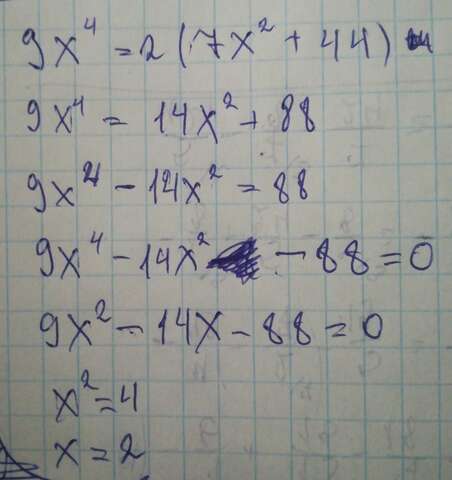 9x⁴ = 2 (7x² + 44)
9x⁴ = 14x² + 88
9x⁴ - 14x² = 88
9x⁴ - 14x² - 88 = 0
9x² - 14x - 88 = 0
x² = 4
x = 2